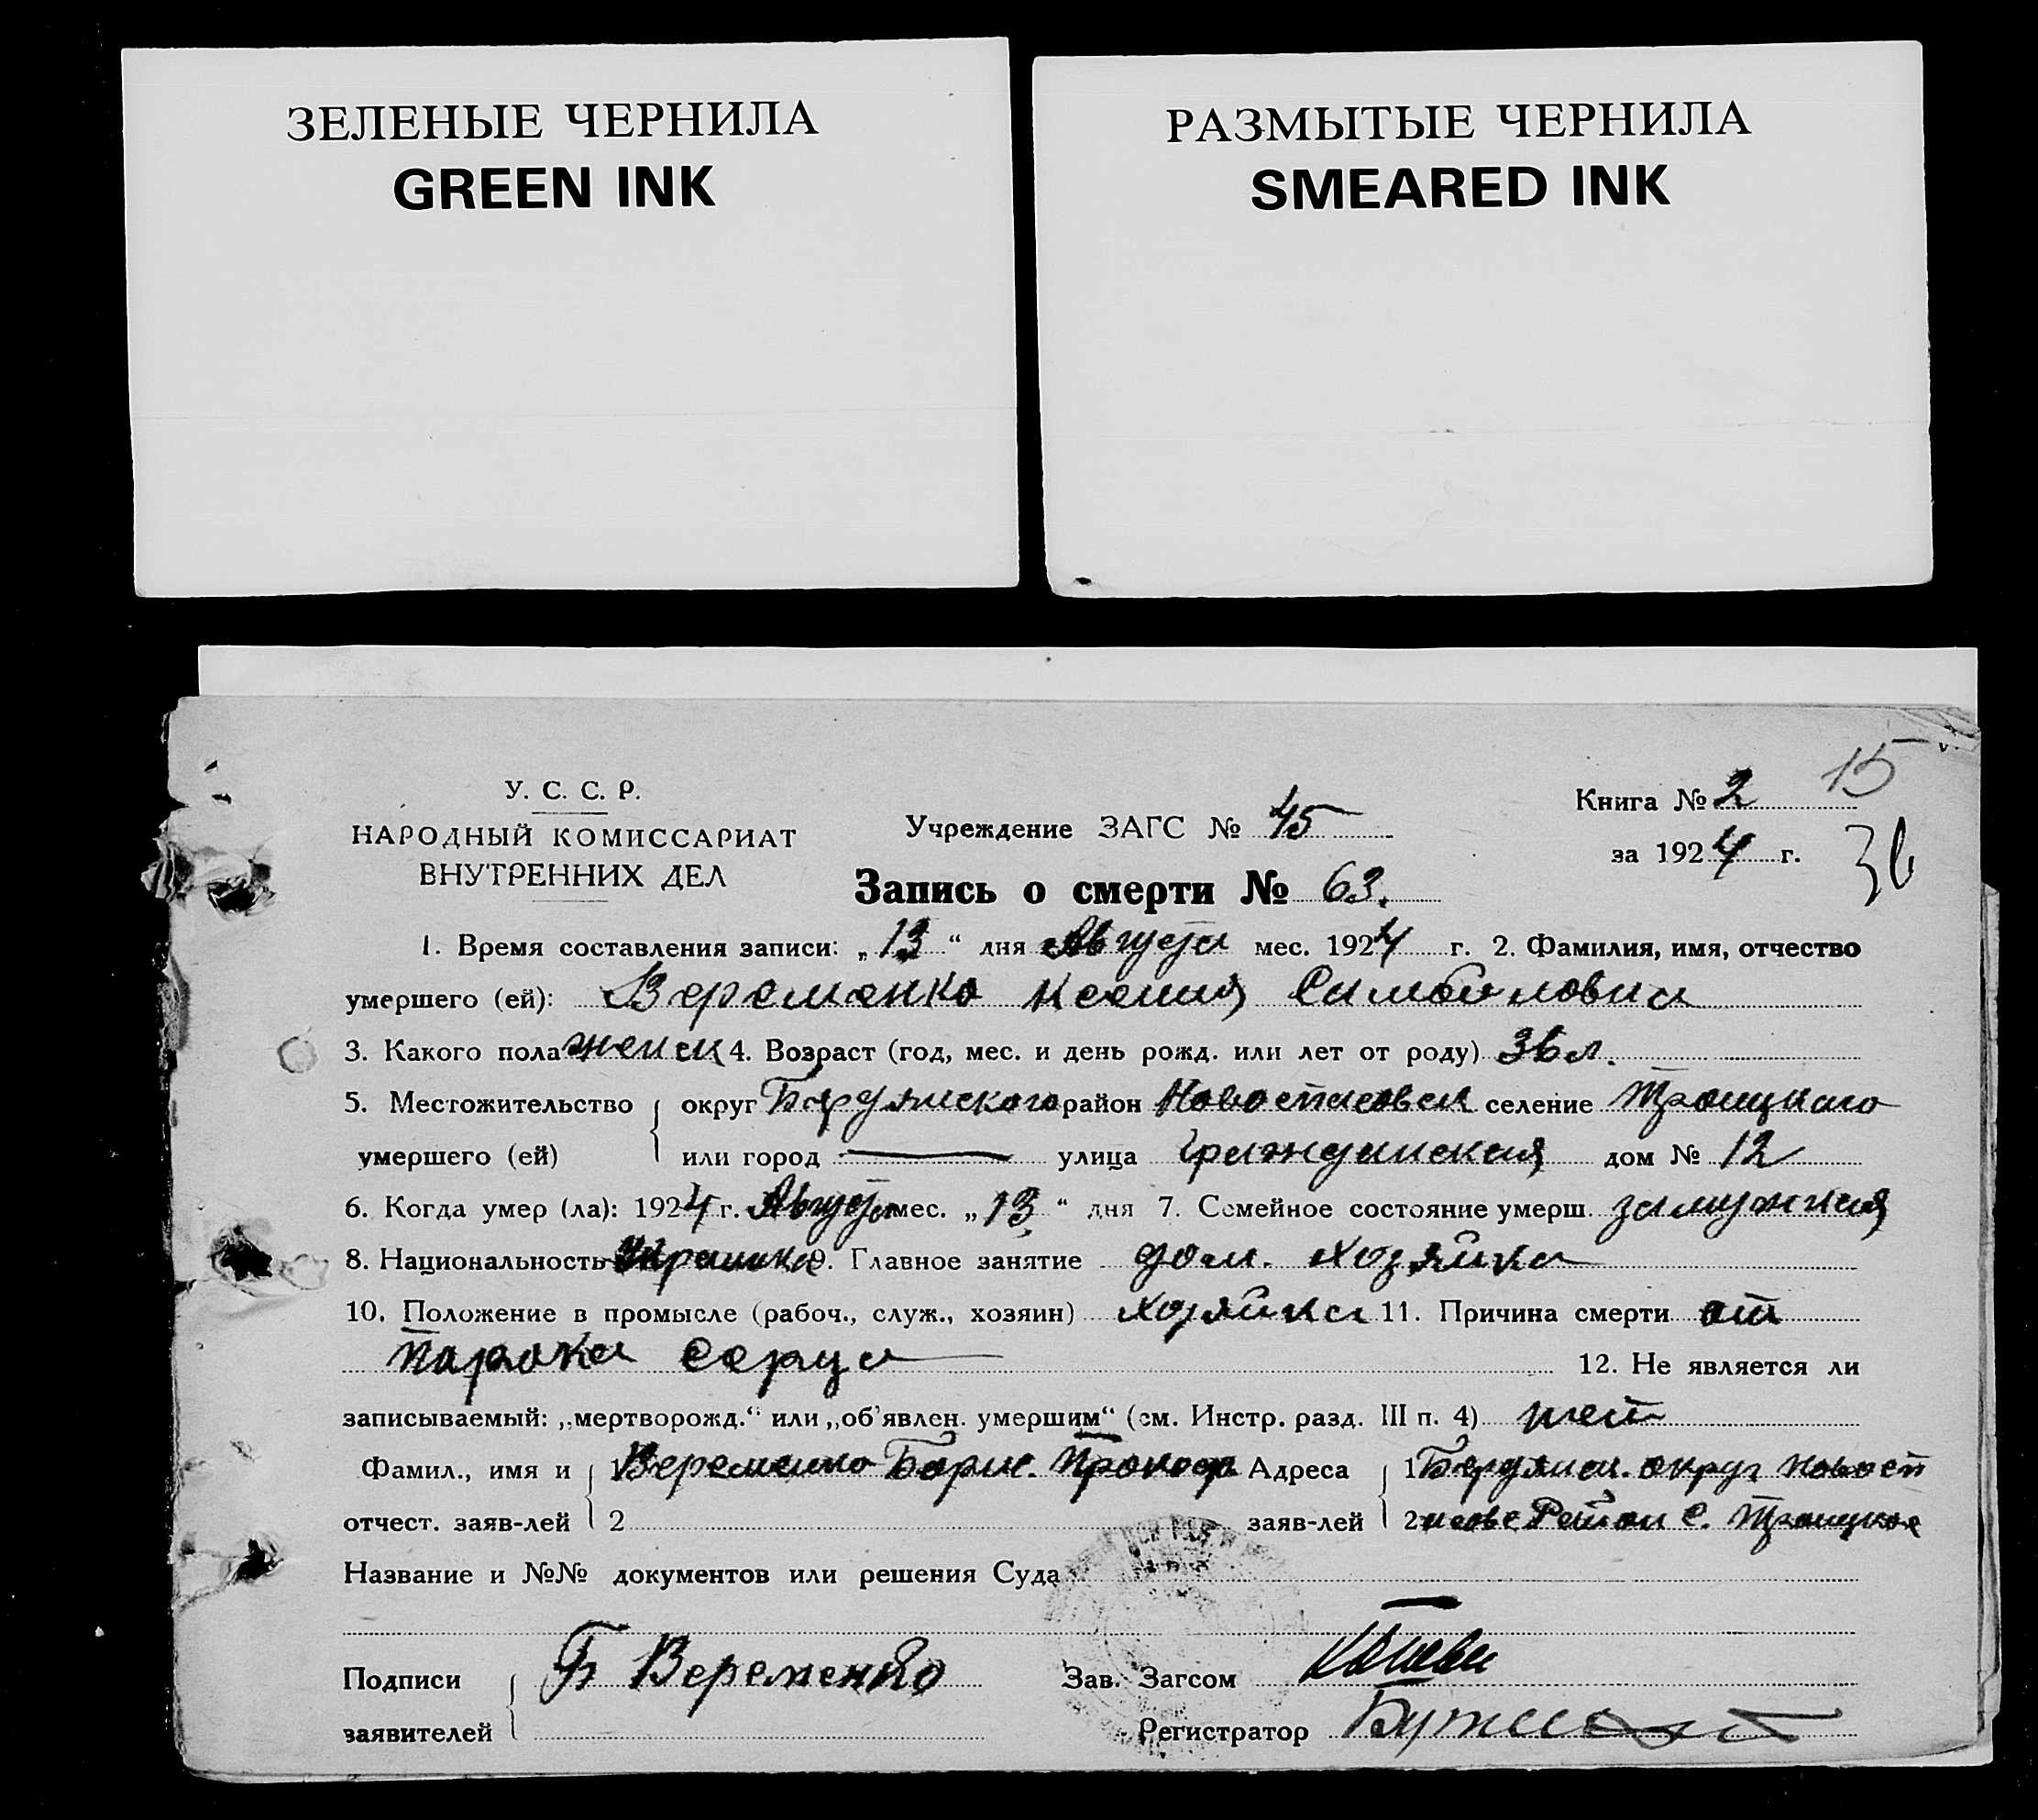 ЗЕЛЕНЫЕ ЧЕРНИЛА
GREEN INK
РАЗМЫТЫЕ ЧЕРНИЛА
SMEARED INK
15
У. С. С. Р.
НАРОДНЫЙ КОМИССАРИАТ
ВНУТРЕННИХ ДЕЛ
Учреждение ЗАГС № 45
Книга № 2
за 1924 г.
36
Запись о смерти № 63.
1. Время составления записи: „13“ дня Августа мес. 1924 г. 2. Фамилия, имя, отчество
умершего (ей): Веременко Ксения Самойловна
3. Какого пола женск 4. Возраст (год, мес. и день рожд. или лет от роду) 36 л.
5. Местожительство округ Бердянского район Новоспасовск селение Троицкого
умершего (ей) или город — улица Гражданская дом № 12
6. Когда умер (ла): 1924 г. Августа мес. „13“ дня 7. Семейное состояние умерш. замужняя
8. Национальность 9. Главное занятие дом. хозяйка
10. Положение в промысле (рабоч., служ., хозяин) хозяйка 11. Причина смерти от
порока серца
12. Не является ли
записываемый: „мертворожд.“ или „об’явлен. умершим“ (см. Инстр. разд. III п. 4) нет
Фамил., имя и 1 Веременко Борис. Прокоф Адреса 1 Бердянск. округ Новосп
отчест. заяв-лей 2 заяв-лей 2 асовс Район с. Троицкое
Название и №№ документов или решения Суда
Подписи Б Веременко Зав. Загсом
заявителей Регистратор